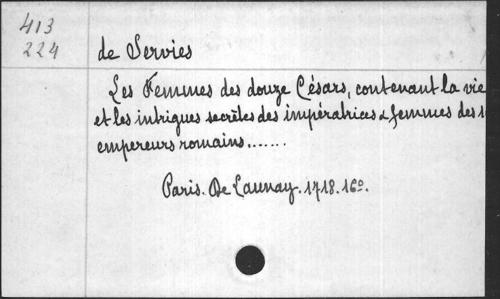 413
224
de Serviès
Les Femmes des douze Césars, contenant la vie
et les intrigues secrètes des impératrices & femmes des
empereurs romains.......
Paris. De Launay. 1718. 16º.